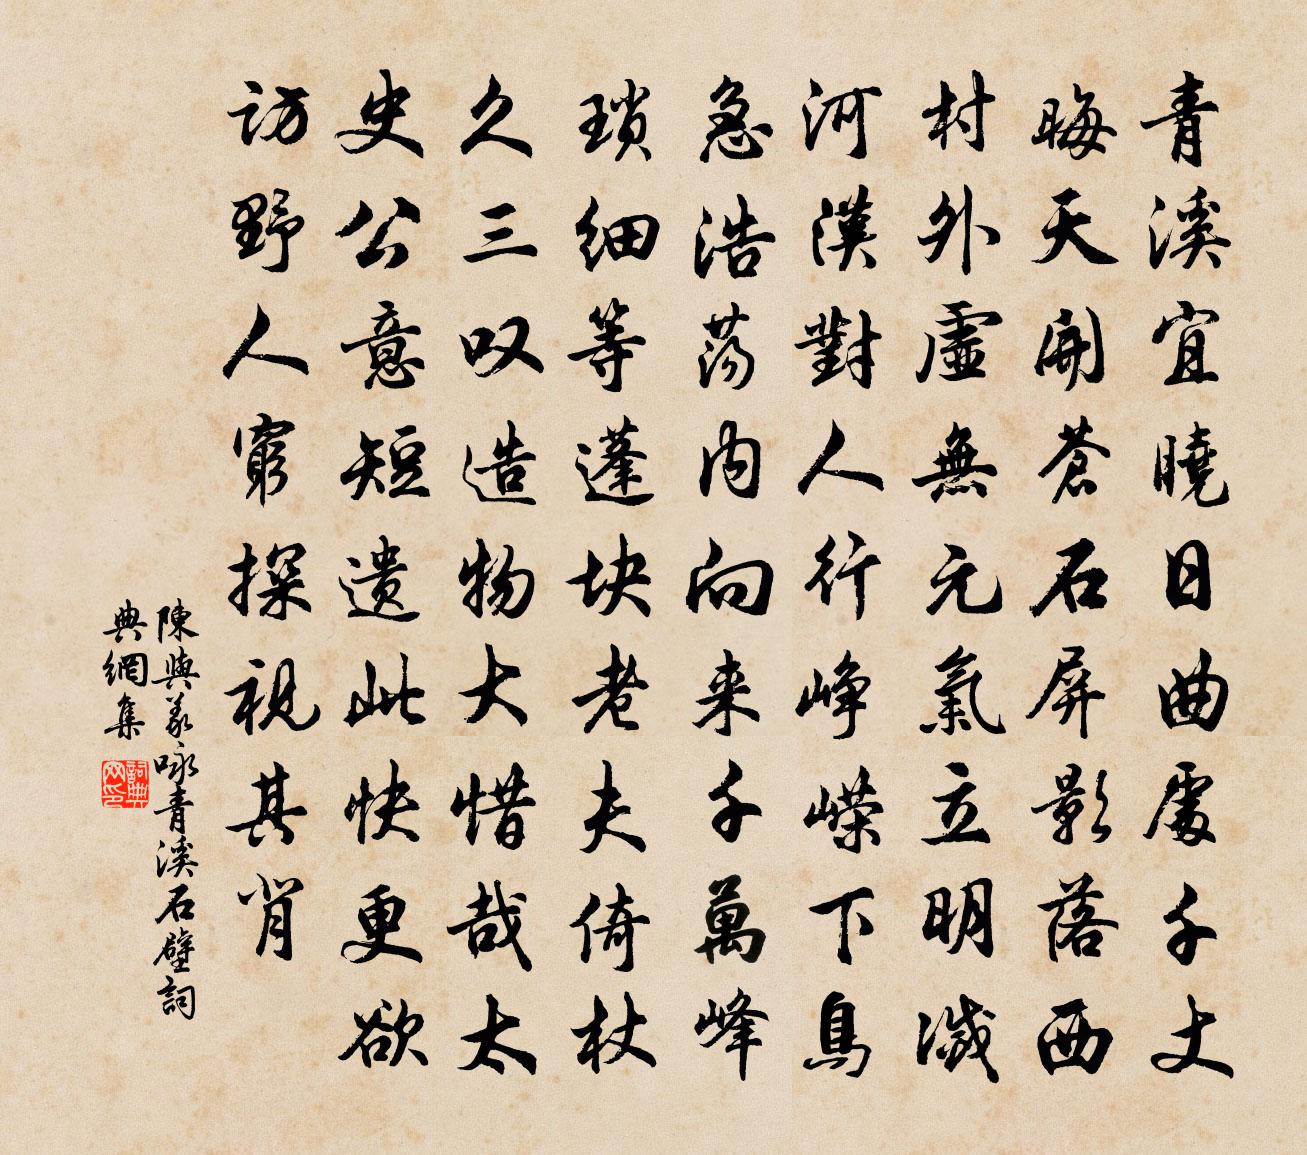 青溪宜曉日曲處千丈
晦天開蒼石屏影落西
村外虛無元氣立明滅
河漢對人行崢嶸下鳥
急浩蕩內向来千萬峰
瑣細等蓬块老夫倚杖
久三叹造物大惜哉太
史公意短遺此快更欲
訪野人窮探視其背
陳與義咏青溪石壁詞
典網集
詞典網印